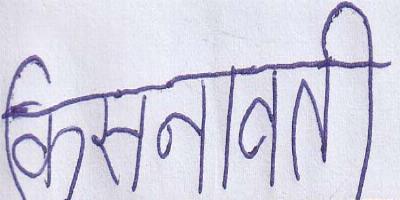 किसनावती